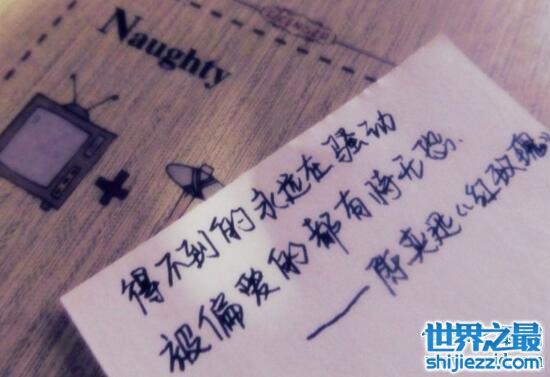 Naughty
得不到的永远在骚动
被偏爱的都有恃无恐.
——陈奕迅《红玫瑰》
世界之最
shijiezz.com